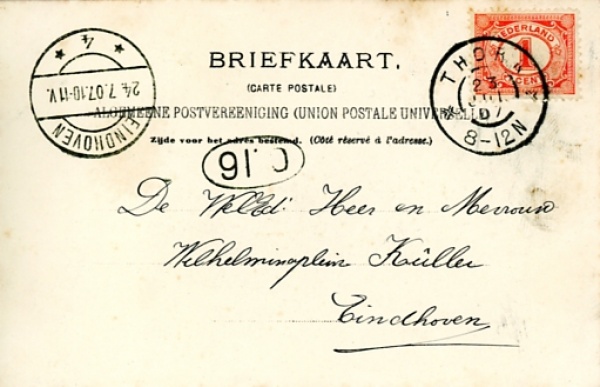 BRIEFKAART.
(CARTE POSTALE)
ALGEMEENE POSTVEREENIGING (UNION POSTALE UNIVERSELLE)
Zijde voor het adres bestemd. (Côté réservé à l'adresse.)
NEDERLAND
1
CENT
THORN
23
JUL
07
8-12N
EINDHOVEN
24.7.07.10-11V.
* 4 *
De WelEd: Heer en Mevrouw
Wilhelminaplein Küller
Eindhoven